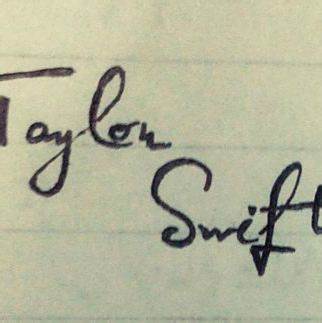 Taylor
Swift